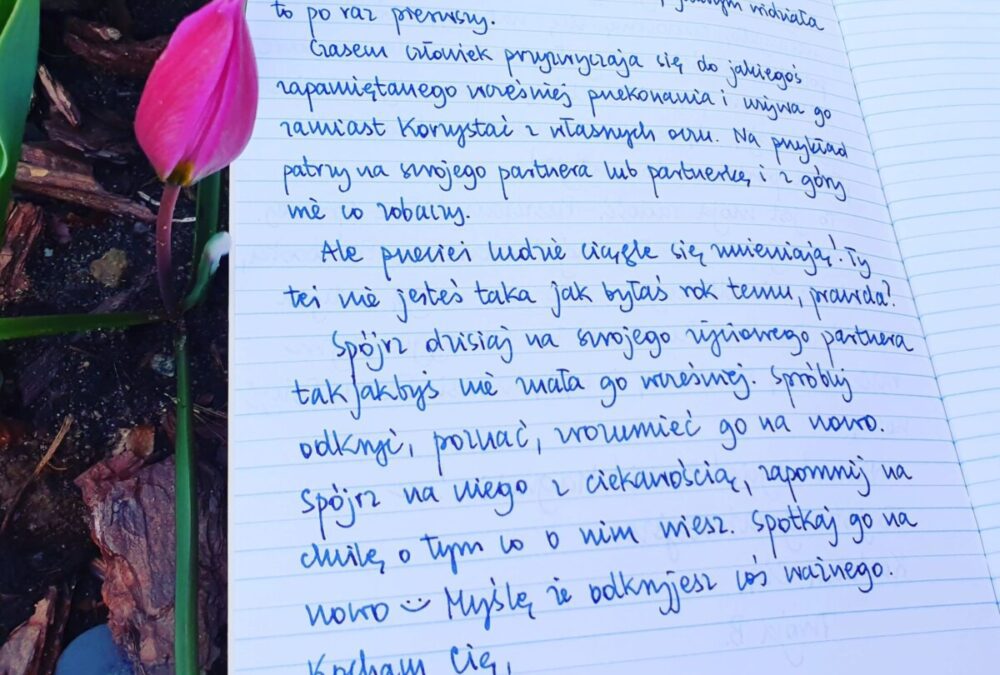 widziała
to po raz pierwszy.
Czasem człowiek przyzwyczaja się do jakiegoś
zapamiętanego wcześniej przekonania i używa go
zamiast korzystać z własnych oczu. Na przykład
patrzy na swojego partnera lub partnerkę i z góry
wie co zobaczy.
Ale przecież ludzie ciągle się zmieniają! Ty
też nie jesteś taka jak byłaś rok temu, prawda?
Spójrz dzisiaj na swojego życiowego partnera
tak jakbyś nie znała go wcześniej. Spróbuj
odkryć, poznać, zrozumieć go na nowo.
Spójrz na niego z ciekawością, zapomnij na
chwilę o tym co o nim wiesz. Spotkaj go na
nowo :) Myślę że odkryjesz coś ważnego.
Kocham Cię,